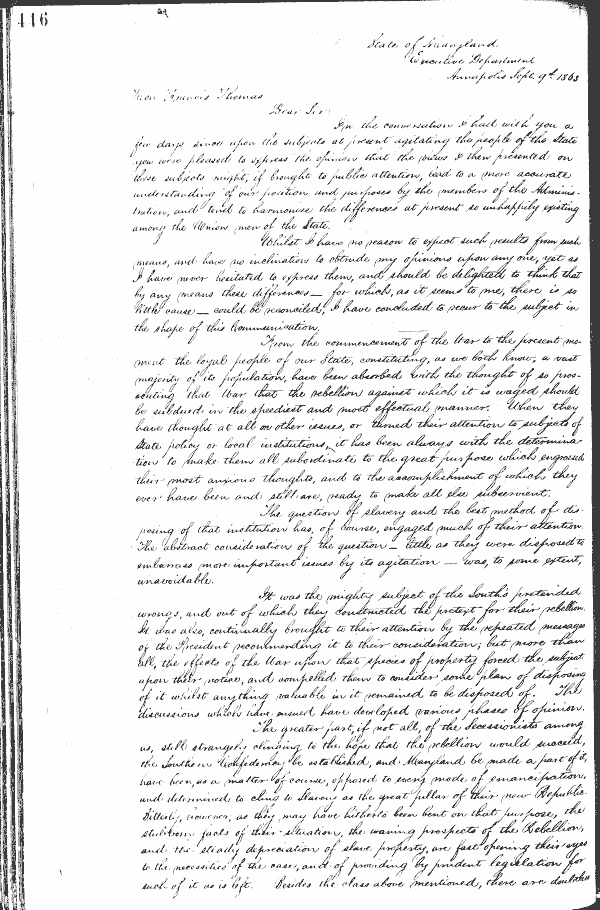 446
State of Maryland
Executive Department
Annapolis Sept. 9th 1863
Hon Francis Thomas
Dear Sir:
In the conversation I had with you a
few days since upon the subjects at present agitating the people of the State
you were pleased to express the opinion that the views I then presented on
those subjects might, if brought to public attention, lead to a more accurate
understanding of our position and purposes by the members of the Adminis-
tration, and tend to harmonise the differences at present so unhappily existing
among the Union men of the State.
Whilst I have no reason to expect such results from such
means, and have no inclination to obtrude my opinions upon any one, yet as
I have never hesitated to express them, and should be delighted to think that
by any means these differences — for which, as it seems to me, there is so
little cause — could be reconciled, I have concluded to recur to the subject in
the shape of this Communication.
From the commencement of the War to the present mo-
ment the loyal people of our State, constituting, as we both know, a vast
majority of its population, have been absorbed with the thought of so pros-
ecuting that War that the rebellion against which it is waged should
be subdued in the speediest and most effectual manner. When they
have thought at all on other issues, or turned their attention to subjects of
State policy or local institutions, it has been always with the determina-
tion to make them all subordinate to the great purpose which engrossed
their most anxious thoughts, and to the accomplishment of which they
ever have been and still are, ready to make all else subservient.
The question of slavery and the best method of dis-
posing of that institution has, of course, engaged much of their attention.
The abstract consideration of the question — little as they were disposed to
embarrass more important issues by its agitation — was, to some extent,
unavoidable.
It was the mighty subject of the Souths pretended
wrongs, and out of which they constructed the pretext for their rebellion.
It was also, continually brought to their attention by the repeated messages
of the President recommending it to their consideration; but more than
all, the effects of the War upon that species of property forced the subject
upon their notice, and compelled them to consider some plan of disposing
of it whilst anything valuable in it remained to be disposed of. The
discussions which have ensued have developed various phases of opinion.
The greater part, if not all, of the Secessionists among
us, still strangely clinging to the hope that the rebellion would succeed,
the Southern Confederacy be established, and Maryland be made a part of it,
have been, as a matter of course, opposed to every mode of emancipation,
and determined to cling to Slavery as the great pillar of their new Republic.
Bitterly, however, as they may have hitherto been bent on that purpose, the
stubborn facts of their situation, the waning prospects of the Rebellion,
and the steady depreciation of slave property, are fast opening their eyes
to the necessities of the case, and of providing by prudent legislation for
such of it as is left. Besides the class above mentioned, there are doubtless